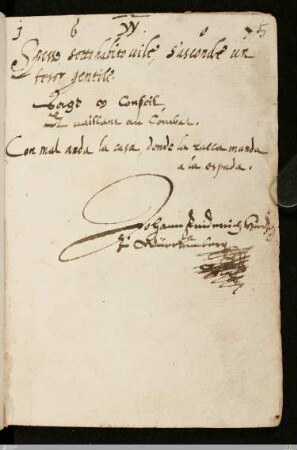 1 6 W 0 7
Spesso sotto habito vile s'asconde un
tesor gentile.
Sage en Conseil,
Et vaillant au Combat.
Con mal anda la casa, donde la rueca manda
a la espada.
Johann Friderich Hertzog
zu Württemberg